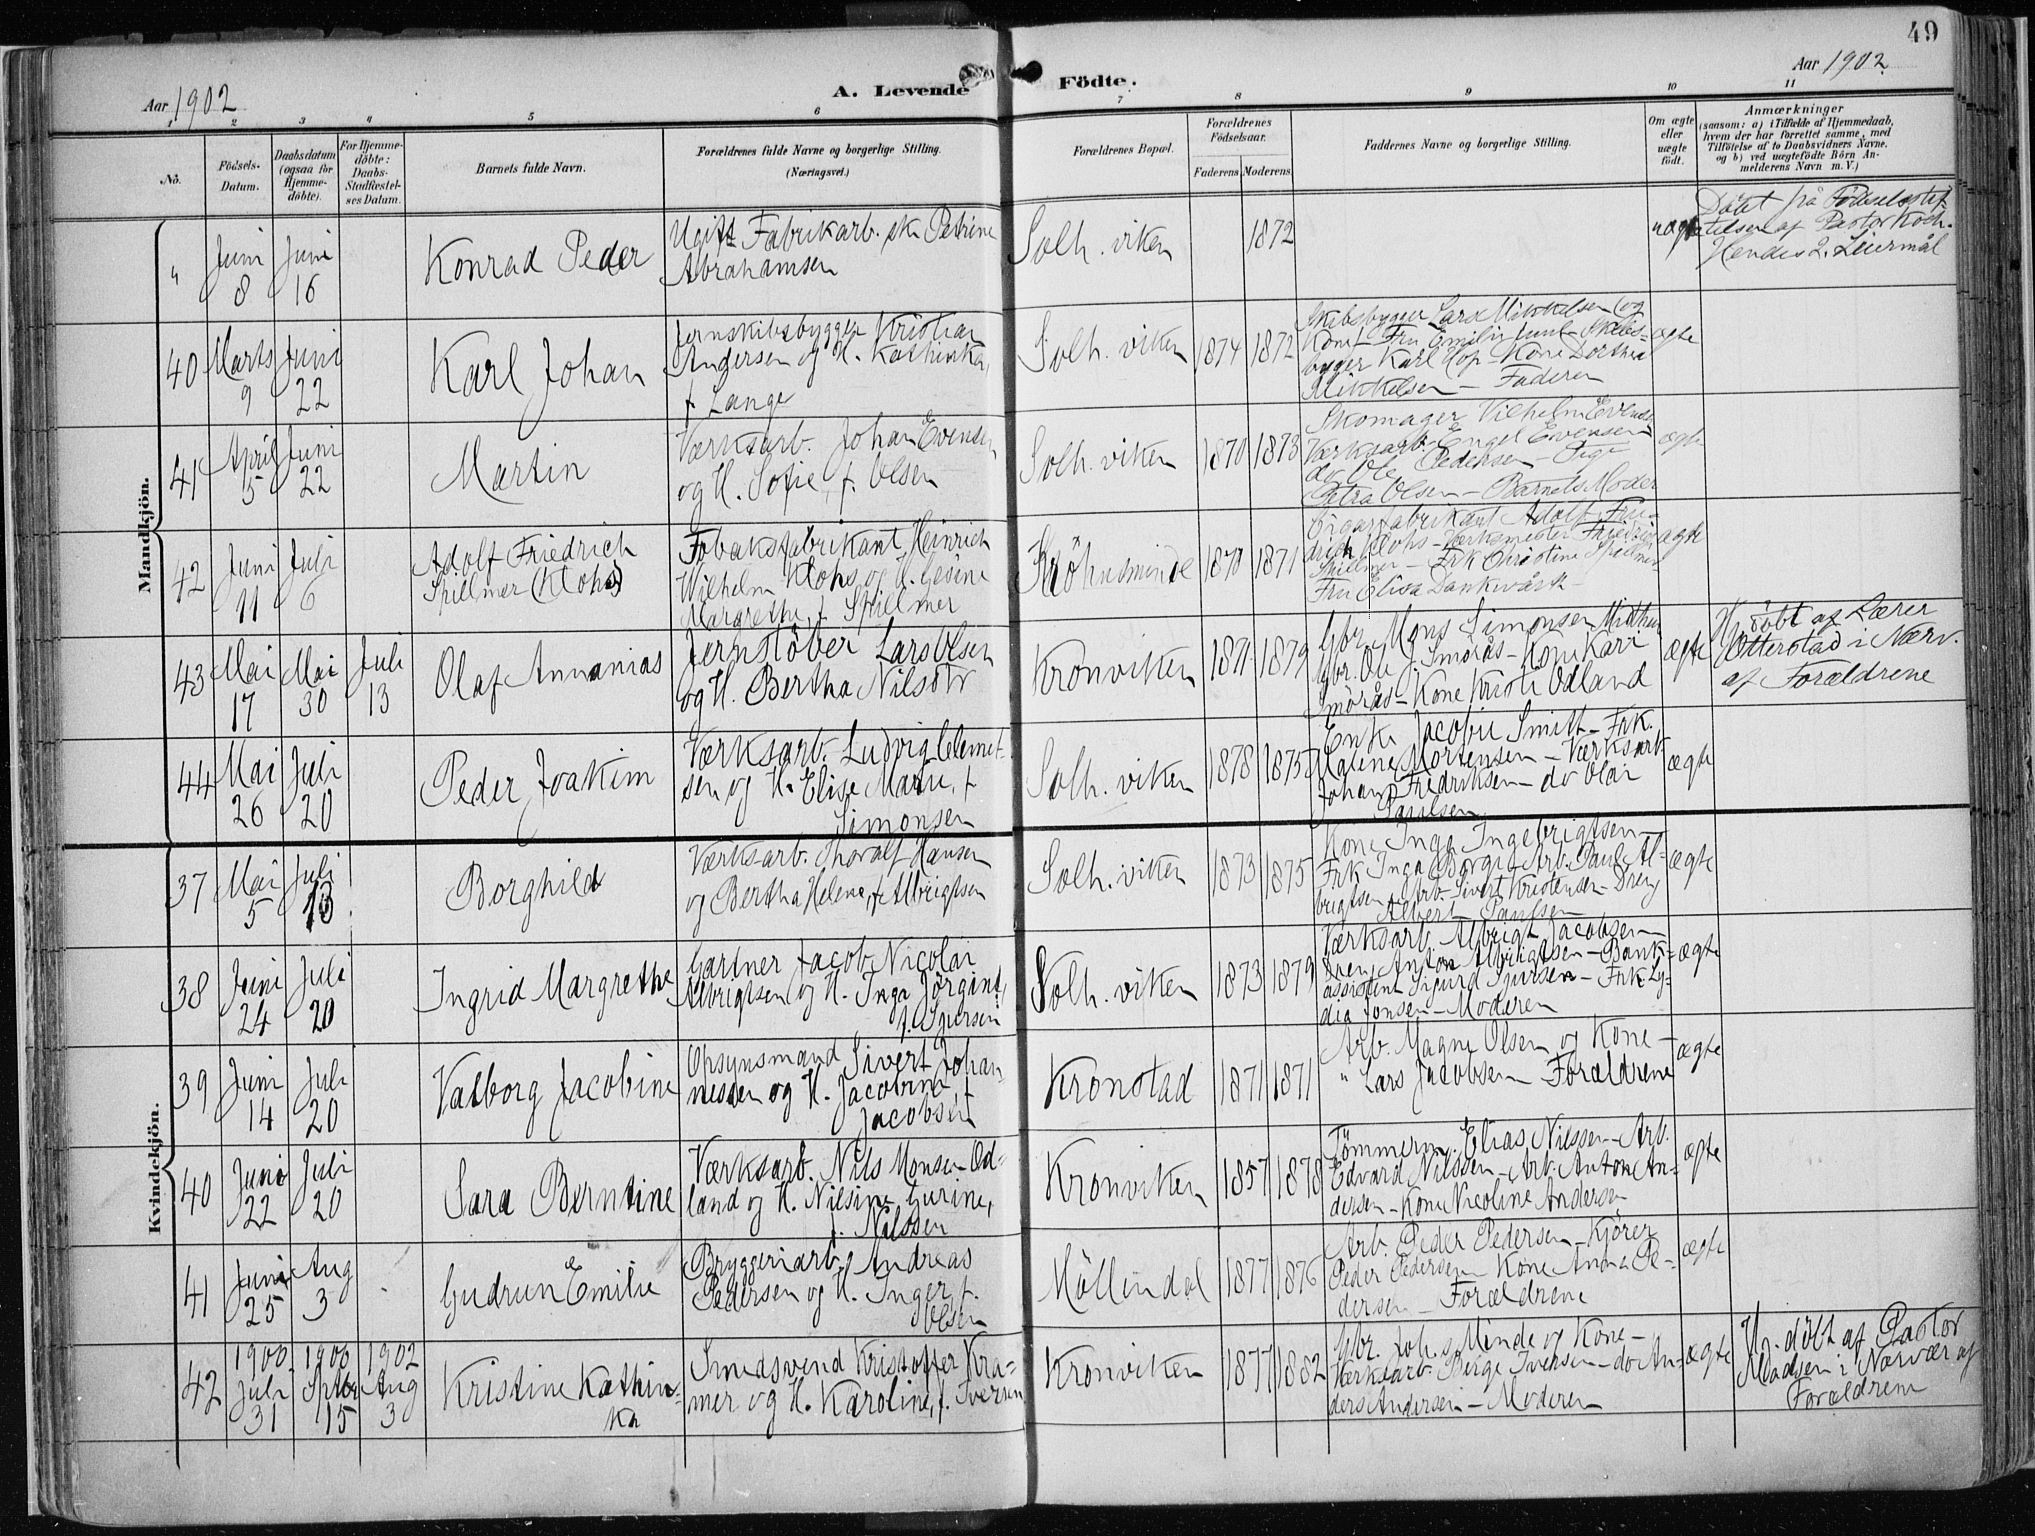 49
Aar 1902
A. Levende Födte.
Aar 1902.
1 2 3 4 5 6 7 8 9 10 11
No.
Födsels-
Datum.
Daabsdatum
(ogsaa for
Hjemme-
döbte).
For Hjemme-
döbte:
Daabs-
Stadfæstel-
ses Datum.
Barnets fulde Navn.
Forældrenes fulde Navne og borgerlige Stilling.
(Næringsvei.)
Forældrenes Bopæl.
Forældrenes
Födselsaar.
Faderens Moderens
Faddernes Navne og borgerlige Stilling.
Om ægte
eller
uægte
födt.
Anmærkninger
(saasom: a) i Tilfælde af Hjemmedaab,
hvem der har forrettet samme, med
Tilföielse af to Daabsvidners Navne,
og b) ved uægtefödte Börn An-
melderens Navn m. V.)
Mandkjön.
" Juni 8 Juni 16
Konrad Peder
Ugift Fabrikarb.sk. Petrine
Abrahamsen
Solh. viken
1872
uægte
Döbt på Födselsstif-
telsen af Pastor Koch.
Hendes 2. Leiermål
40 Marts 9 Juni 22
Karl Johan
Jernskibsbygger Kristian
Andersen og H. Kathinka,
f. Lange
Solh. viken
1874 1872
Skibsbygger Lars Mikkelsen (og
Kone) - Fru Emilie Juul - Skibs-
bygger Karl Hop - Kone Dorthea
Mikkelsen - Faderen
ægte
41 April 5 Juni 22
Martin
Værksarb. Johan Evensen
og H. Sofie, f. Olsen
Solh. viken
1870 1873
Skomager Vilhelm Evensen
Værksarb. Engel Evensen
do Ole Pedersen - Pige
Petra Olsen - Barnets Moder
ægte
42 Juni 11 Juli 6
Adolf Friedrich
Spillmer (Klohs)
Tobaksfabrikant Heinrich
Wilhelm Klohs og H. Gesine
Margrethe f. Spillmer
Kröhnsminde
1870 1871
Cigarfabrikant Adolf Frie-
drich Klohs - Værksmester Friedrich
Spillmer - Frk Christine Spillmer
Fru Elisa Dankwårt -
ægte
43 Mai 17 Mai 30 Juli 13
Olaf Annanias
Jernstöber Lars Olsen
og H. Bertha Nilsdtr
Kronviken
1871 1879
Gbr. Mons Simonsen Midthun
Gbr. Ole J. Smörås - Kone Kari
Smörås - Kone Kristi Odland
ægte
Hj. döbt af Lærer
Otterstad i Nærv.
af Forældrene
44 Mai 26 Juli 20
Peder Joakim
Værksarb. Ludvig Clemet-
sen og H. Elise Marie, f.
Simonsen
Solh. viken
1878 1875
Enke Jacobie Smitt - Frk.
Malene Mortensen - Værksarb
Johan Fredriksen - do Olai
Paulsen
ægte
Kvindekjön.
37 Mai 5 Juli 13
Borghild
Værksarb. Thoralf Hansen
og Bertha Helene, f. Albrigtsen
Solh. viken
1873 1875
Kone Inga Ingebrigtsen -
Frk Inga Borge - Arb. Paul Al-
brigtsen - Arb. Sivert Kristensen - Dreng
Albert Paulsen
ægte
38 Juni 24 Juli 20
Ingrid Margrethe
Gartner Jacob Nicolai
Albrigtsen og H. Inga Jörgine,
f. Sjursen
Solh. viken
1873 1879
Værksarb Albrigt Jacobsen -
Dreng Anton Albrigtsen - Bank-
assistent Sigurd Sjursen - Frk Ly-
dia Jonsen - Moderen
ægte
39 Juni 14 Juli 20
Valborg Jacobine
Opsynsmand Sivert Johan-
nessen og H. Jacobine f.
Jacobsen
Kronstad
1871 1871
Arb. Magne Olsen og Kone -
" Lars Jacobsen - Forældrene
ægte
40 Juni 22 Juli 20
Sara Berntine
Værksarb. Nils Monsen Od-
land og H. Nilsine Gurine,
f. Nilssen
Kronviken
1857 1878
Tömmerm. Elias Nilssen - Arb.
Edvard Nilssen - Arb. Anton An-
dersen - Kone Nicoline Andersen
ægte
41 Juni 25 Aug 3
Gudrun Emilie
Bryggeriarb. Andreas
Pedersen og H. Inger, f.
Olsen
Möllendal
1877 1876
Arb. Peder Pedersen - Kjörer
Peder Pedersen - Kone Anna Pe-
dersen - Forældrene
ægte
42 1900 Juli 31 1900 Sptbr 15 1902 Aug 3
Kristine Kathin-
ka
Smedsvend Kristoffer Kra-
mer og H. Karoline, f. Iversen
Kronviken
1877 1882
Gbr. Johs Minde og Kone -
Værksarb. Birge Iversen - do An-
ders Andersen - Moderen
ægte
Hj. döbt af Pastor
Madsen i Nærvær af
Forældrene